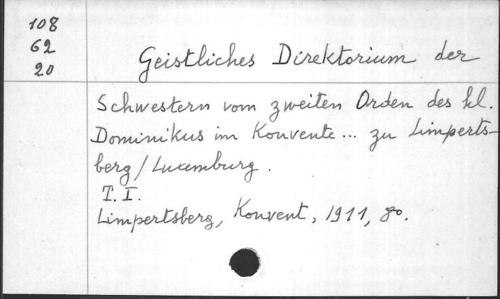 108
62
20
Geistliches Direktorium der
Schwestern vom zweiten Orden des hl.
Dominikus im Konvente ... zu Limperts-
berg/Luxemburg.
T. I.
Limpertsberg, Konvent, 1911, 8o.